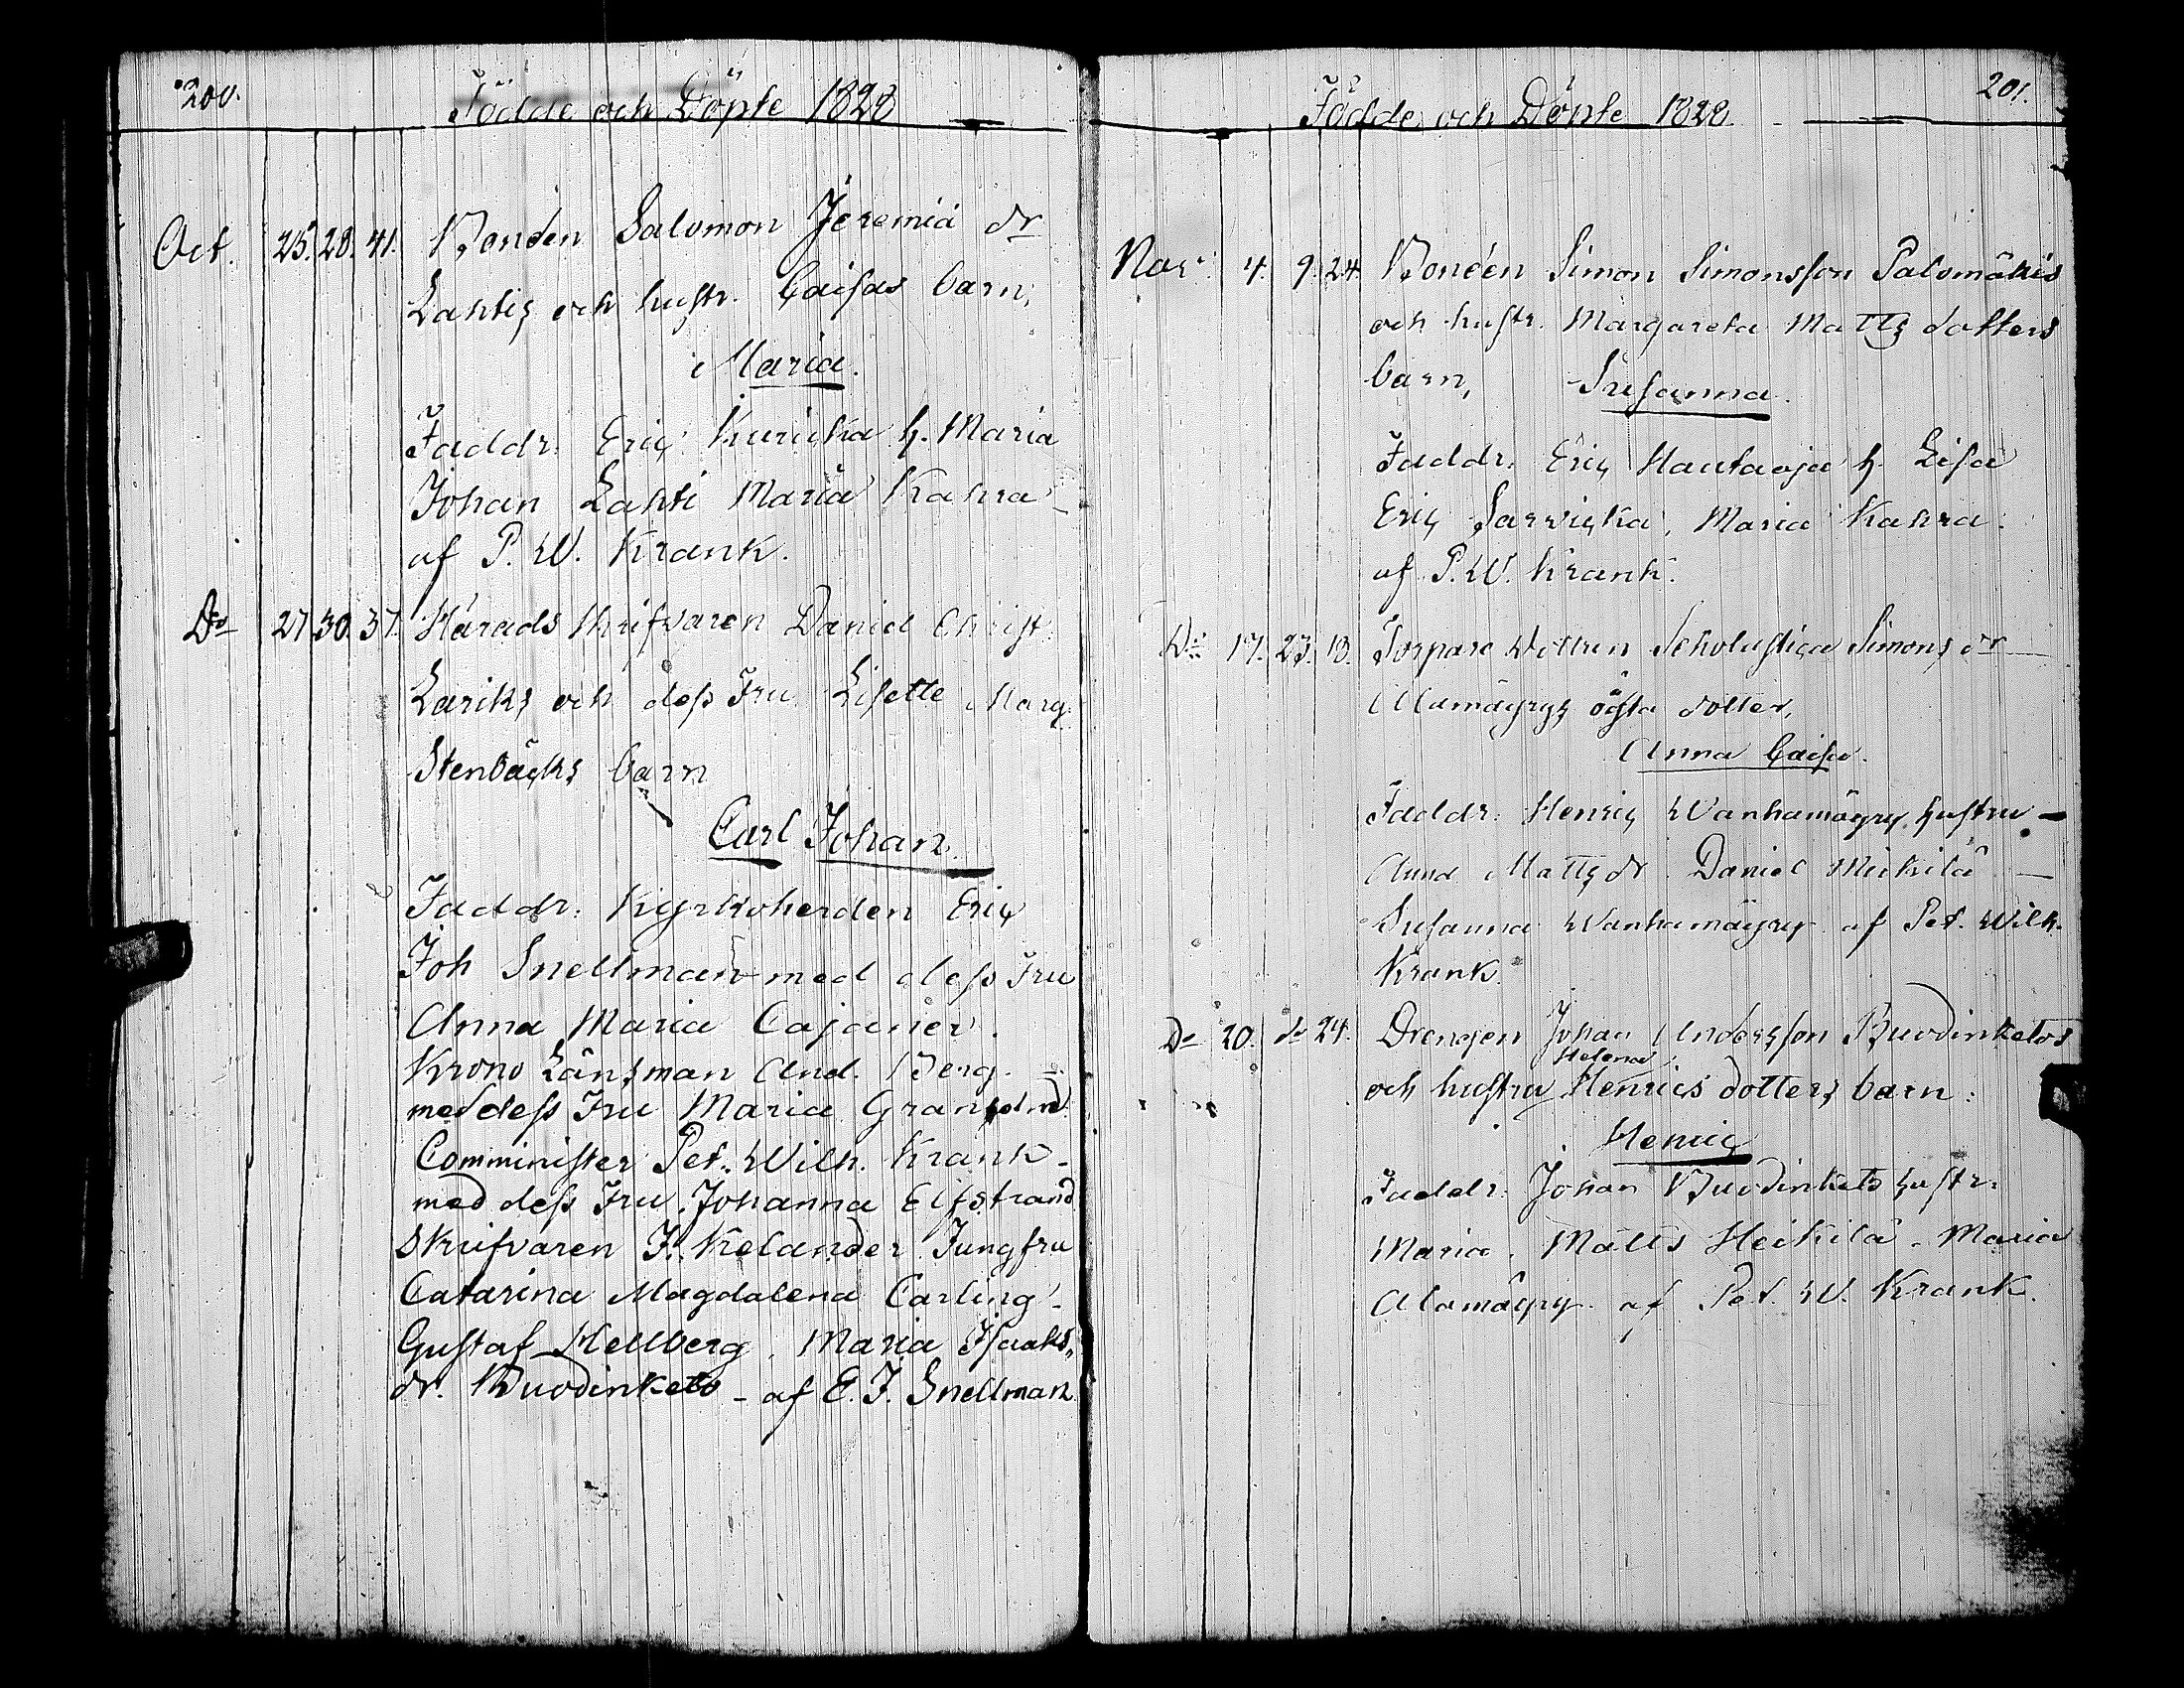 200.
Födde och Döpte 1828
Oct. 25. 28. 41. Bonden Salomon Jeremiæ dr
Lahtis och hustr. Caisas barn,
Maria.
Faddr. Eric Kuricka h. Maria
Johan Lahti Maria Kahra
af P. W. Krank.
Do 27. 30. 37. Härads Skrifvaren Daniel Christ.
Lariks och dess Fru Lisette Marg.
Stenbäcks barn
Carl Johan.
Faddr. Kyrkoherden Eric
Joh Snellman med dess Fru
Anna Maria Cajaner.
Krono Länsman And. Berg.
med dess Fru Maria Granlund
Comminister Pet. Wilh. Krank
med dess Fru Johanna Elfstrand
Skrifvaren J. Kelander Jungfru
Catarina Magdalena Carling
Gustaf Hellberg, Maria Isaaks
dr. Buodinketo - af E. J. Snellman
201.
Födde och Döpte 1828
Novr. 4. 9. 24. Bonden Simon Simonsson Palomäkis
och hustr. Margareta Matts dotters
barn, Susanna.
Faddr. Eric Hautaoja h. Lisa
Eric Sarvicka, Maria Kahra.
af P. W. Krank.
Do 17. 23. 18. Torpare Dottren Scholastica Simons dr
Alamäyrys oägta dotter,
Anna Caisa.
Faddr. Henric Wanhamäyry hustru
Anna Matts dr. Daniel Mickilä
Susanna Wanhamäyry af Pet. Wilh.
Krank.
Do 20. do 24. Drengen Johan Andersson Buodinketos
Helena
och hustru Henrics dotters barn:
Henric
Faddr. Johan Buodinketo hustr.
Maria, Matts Heikilä, Maria
Alamäyry af Pet. W. Krank.